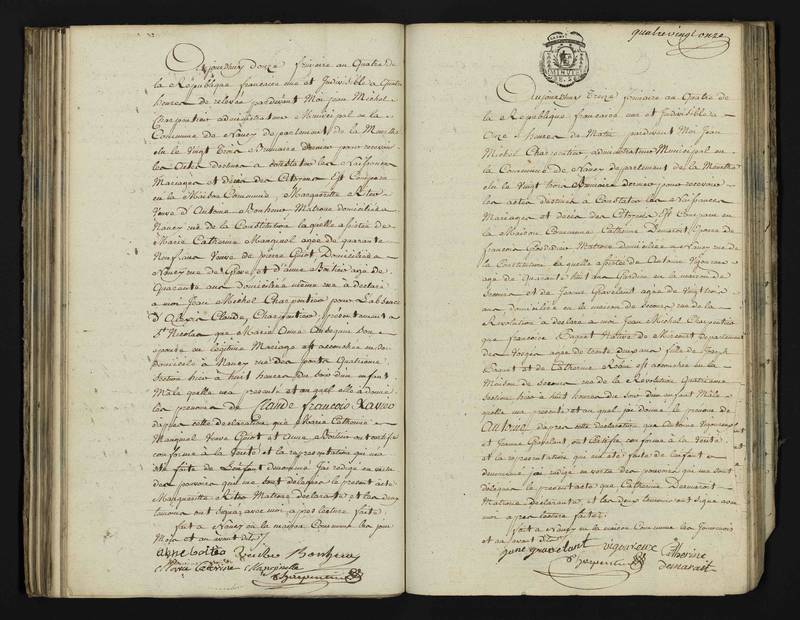 Aujourd'huy douze frimaire an Quatre de
la République française une et Indivisible à Quatre
heures de relevée pardevant Moi Jean Michel
Charpentier administrateur Municipal en la
Commune de Nancy département de la Meurthe
élu le Vingt Trois Brumaire Dernier pour recevoir
les Actes destinés à constater les Naissances
Mariages et décès des Citoyens Est Comparu
en la Maison Commune, Marguerite
Veuve d'Antoine Bonheur Matrone domiciliée à
Nancy rue de la Constitution laquelle assistée de
Marie Catherine Manginel agée de quarante
Neuf ans Veuve de pierre Guiot Domiciliée à
Nancy rue de Grève et d'anne agée de
Quarante ans Domiciliée même rue a déclaré
à moi Jean Michel Charpentier pour l'absence
d'Alexis Claude, Charpentier, présentement à
St Nicolas que Marie Anne son
épouse en légitime Mariage est accouchée en son
Domicile à Nancy rue des ponts Quatrième
Section hier à huit heures du soir d'un enfant
Mâle quelle m'a présenté et auquel elle a donné
les prénoms de Claude françois Xavier
d'après cette déclaration que Marie Catherine
Manginel Veuve Guiot et Anne ont certifié
conforme à la Vérité et la représentation qui m'a
été faite de L'enfant dénommé j'ai rédigé en vertu
des pouvoirs qui me sont délégués le présent acte
Marguerite Matrone déclarante et les deux
témoins ont signé avec moi après lecture faite.
fait à Nancy en la maison Commune les jour
Mois et an avant dits
anne Veuve Bonheur
Marie Catherine
Charpentier
quatre vingt onze
MINUTE
Aujourd'huy Treize frimaire an Quatre de
la République française une et indivisible à
Onze heures du Matin pardevant Moi Jean
Michel Charpentier, administrateur Municipal en
la Commune de Nancy département de la Meurthe
élu le Vingt trois Brumaire dernier pour recevoir
les actes destinés à Constater les Naissances
Mariages et décès des Citoyens Est Comparu en
la Maison Commune Catherine Demarest Epouse de
françois Matrone Domiciliée à Nancy rue de
la Constitution laquelle assistée de Antoine Vigoureux
agé de Quarante huit ans Gardien en la maison de
Secours et de Jeanne Gravelant agée de Vingt trois
ans domiciliée en la maison de Secours rue de la
Révolution a déclaré à moi Jean Michel Charpentier
que françoise Native de Mirecourt département
des Vosges agée de trente deux ans fille de Joseph
et de Catherine est accouchée en la
Maison de Secours rue de la Révolution Quatrième
Section hier à huit heures du soir d'un enfant Mâle
quelle m'a présenté et auquel j'ai donné le prénom de
Antoine d'après cette déclaration que Antoine Vigoureux
et Jeanne Gravelant ont certifié conforme à la Vérité
et la représentation qui m'a été faite de l'enfant
dénommé j'ai rédigé en vertu des pouvoirs qui me sont
délégués le présent acte que Catherine Demarest
Matrone déclarante et les deux témoins ont signé avec
moi après lecture faite.
fait à Nancy en la maison Commune les jour mois
et an avant dits
Jane gravelant vigoureux Catherine
Charpentier demarait